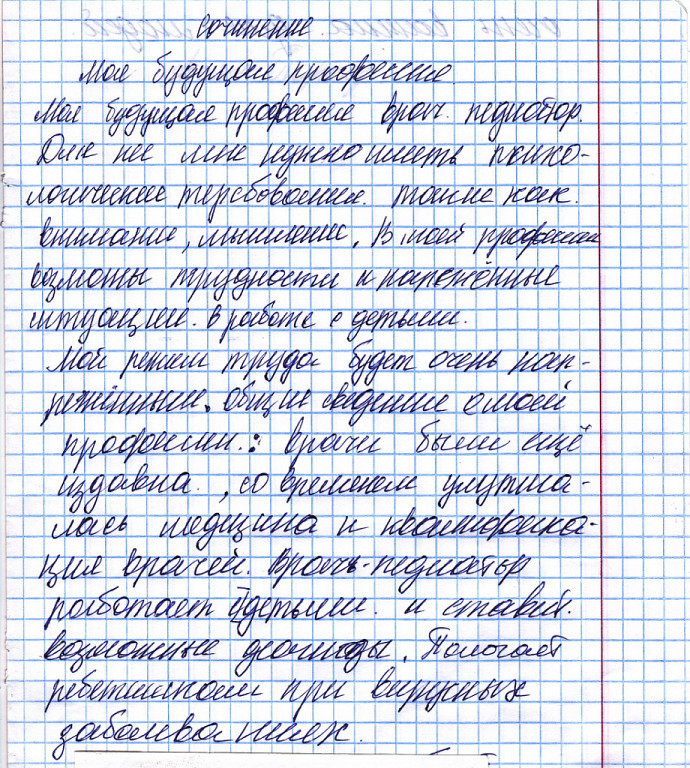 сочинение.
Моя будущая профессия.
Моя будущая профессия врач. педиатор.
Для неё мне нужно иметь психо-
логические теребования. такие как.
внимание, мышление. В моей професии
возможны трудности и напряжённые
ситуации. в работе с детьми.
Мой режим труда будет очень нап-
режённым. общие сведение о моей
професии.: врачи были ещё
издавна., со временем улутша-
лась медицина и квалифека-
ция врачей. Врач-педиатор
работает с детьми. и ставит.
возможные диагнозы. Помогает
ребетишкам при вирусных
заболеваниях.